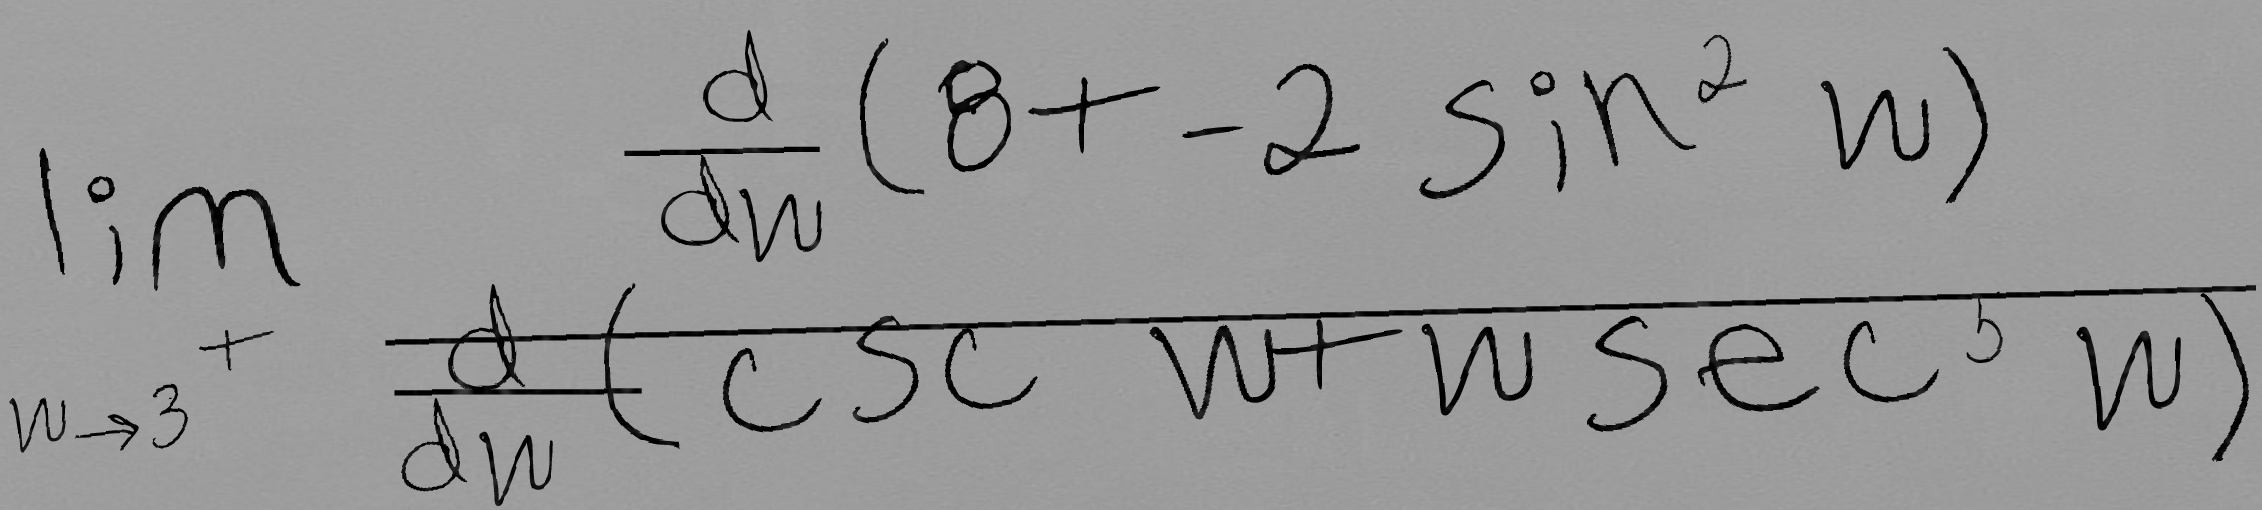 \lim_{w \to 3^+} \frac{\frac{d}{dw}(8+-2 \sin^2 w)}{\frac{d}{dw}(\csc w+w \sec^5 w)}